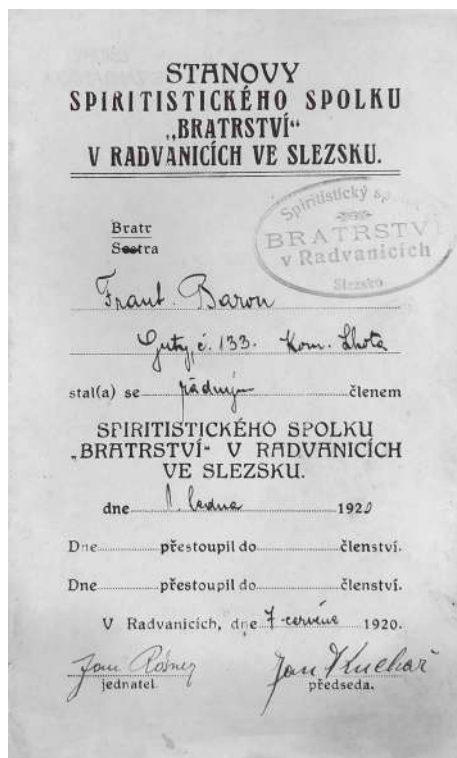 STANOVY
SPIRITISTICKÉHO SPOLKU
„BRATRSTVÍ“
V RADVANICÍCH VE SLEZSKU.
Spiritistický
BRATRSTVÍ
v Radvanicích
Slezsko
Bratr
Sestra
Frant. Baron
Guty, č. 133. Kom. Lhota
stal(a) se řádným členem
SPIRITISTICKÉHO SPOLKU
„BRATRSTVÍ“ V RADVANICÍCH
VE SLEZSKU.
dne 1. ledna 1920
Dne přestoupil do členství.
Dne přestoupil do členství.
V Radvanicích, dne 7 červéna 1920.
Jan Jan Kuchař
jednatel. předseda.